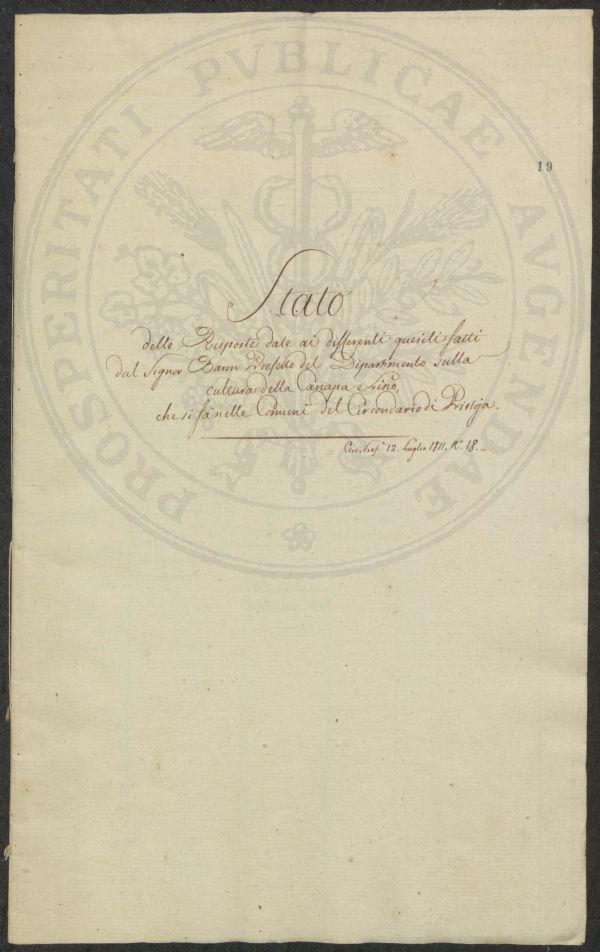 PROSPERITATI PVBLICAE AVGENDAE
19
Stato
delle Risposte date ai differenti quesiti fatti
dal Signor Baron Prefetto del Dipartimento sulla
cultura della Canapa e Lino,
che si fà nelle Comuni del Circondario di Pistoja.
= Circ. Pref. 12. Luglio 1811. N.° 18. =